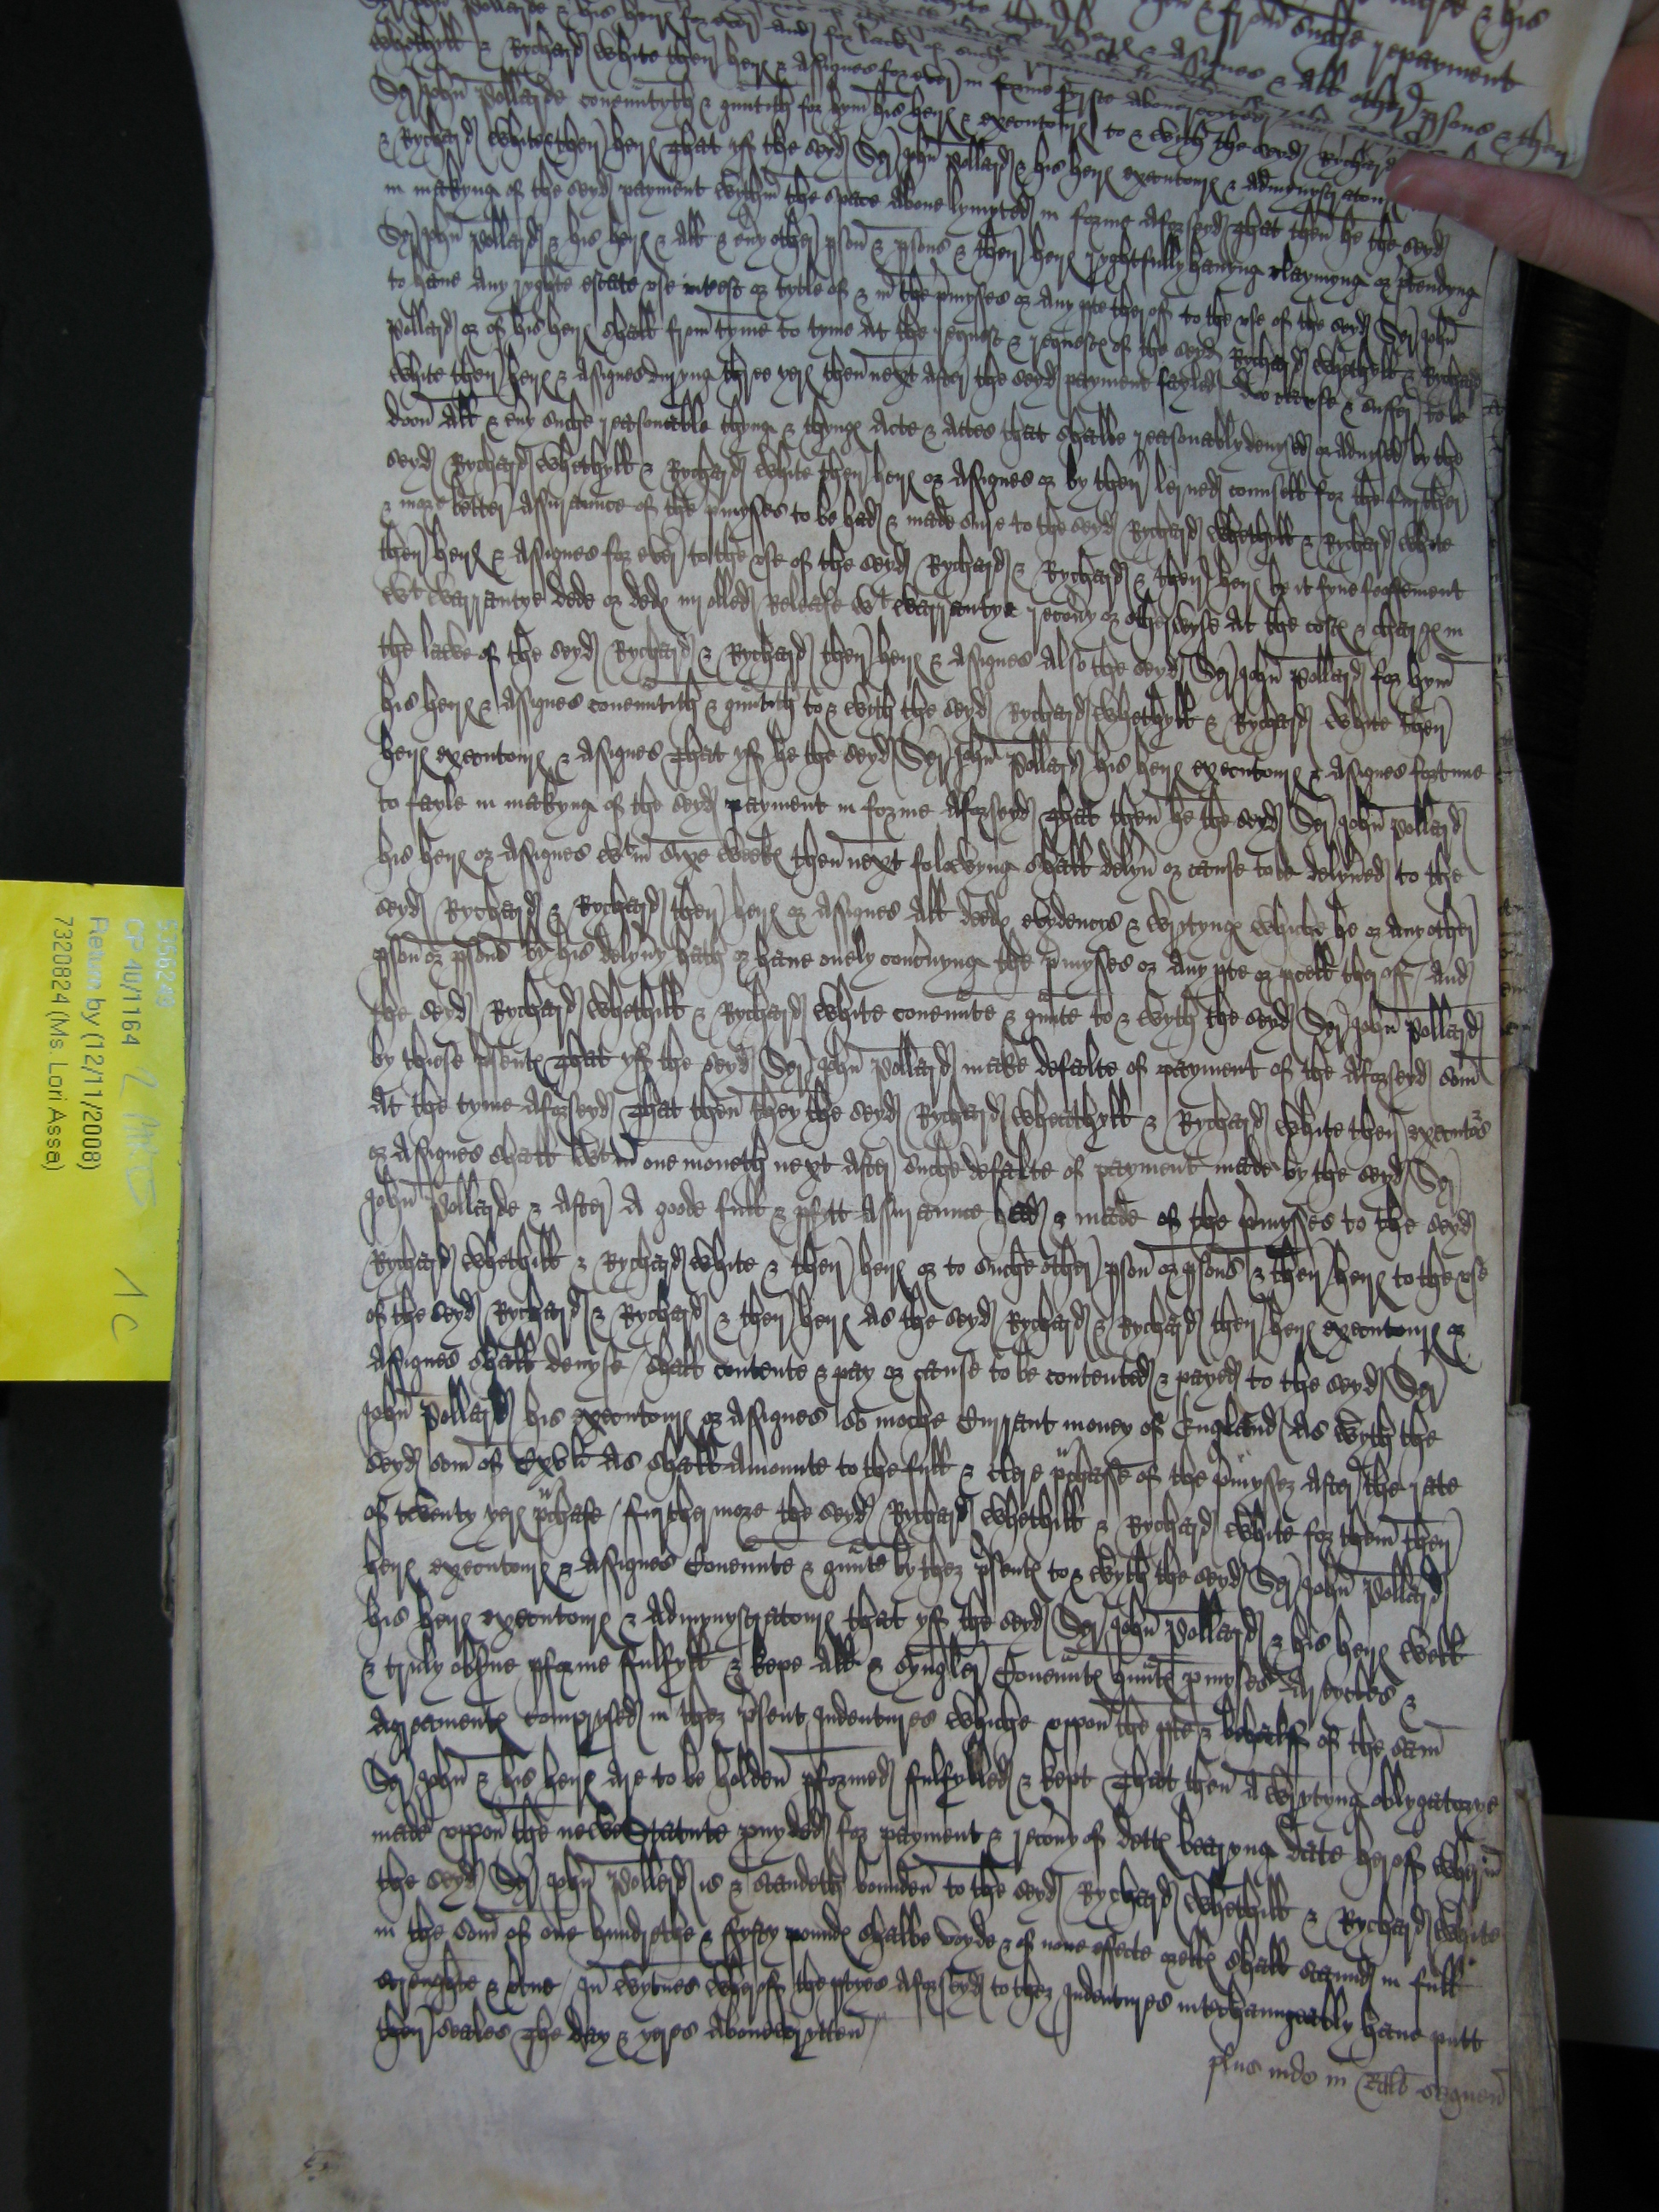 Ser John Pollarde & his heyres for ever And for lack of suche
from suche repayment
Whethyll & Rychard White their heires & Assignes for ever in forme Assignes & All other psons & their
Ser John Pollarde covenutyth & guntith for hym his heires & executours to & with the seyd Rychard
& Rychard White their heires That yf the seyd Ser John Pollard & his heires executours & Admynystratours
in makyng of the seyd payment wythin the space Above lymyted in forme Aforseyd That then he the seyd
Ser John Pollard & his heires & All & evy other pson & psons & their heires ryghtfully havyng claymyng or ptendyng
to have Any ryghte estate use intrest or tytle of & in the pmysses or Any pte therof to the use of the seyd Ser John
Pollard or of his heires shall from tyme to tyme At the request & requestes of the seyd Rychard Whethyll & Rychard
White their heires & Assignes duryng three yeres then next After the seyd payment fayled do cause & suffer to be
doon All & evy suche reasonable thyng & thynges Acte & Actes that shalbe reasonably devysed or Advysed by the
seyd Rychard Whethyll & Rychard White their heires or Assignes or by their lerned counsell for the further
& more better Assuraunce of the pmysses to be had & made sure to the seyd Rychard Whethyll & Rychard White
their heires & Assignes for ever to the use of the seyd Rychard & Rychard & their heires be it fyne feoffement
wt warrantye dede or dedes inrolled Release wt warrantye recovy or otherwyse At the costes & charges in
the lawe of the seyd Rychard & Rychard their heires & Assignes Also the seyd Ser John Pollard for hym
his heires & Assignes covenutith & guntith to & with the seyd Rychard Whethyll & Rychard White their
heires executours & Assignes That yf he the seyd Ser John Pollard his heires executours & Assignes fortune
to fayle in makyng of the seyd payment in forme Aforseyd That then he the seyd Ser John Pollard
his heires or Assignes wtin sixe wekes then next folowyng shall delyv or cause to be delyved to the
seyd Rychard & Rychard their heires or Assignes All dedes evydences & wrytynges whiche he or Any other
pson or psons by his delyvy hath or have onely concnyng the pmysses or Any pte or pcell therof / And
the seyd Rychard Whethill & Rychard White covenute & gunte to & wyth the seyd Ser John Pollard
by these psentes That yf the seyd Ser John Pollard make defalte of payment of the Aforseyd som
At the tyme Aforseyd That then they the seyd Rychard Wheathyll & Rychard White their executors
or Assignes shall wtin one moneth next After suche defalte of payment made by the seyd Ser
John Pollarde & After A goode full & pfytt Assuraunce had & made of the pmysses to the seyd
Rychard Whethill & Rychard White & their heires or to suche other pson or psons & their heires to the use
of the seyd Rychard & Rychard & their heires As the seyd Rychard & Rychard their heires executours or
Assignes shall devyse / shall contente & pay or cause to be contented & payed to the seyd Ser
John Pollard his executours or Assignes so moche Currant money of England As wyth the
seyd som of Cxvli As shall Amounte to the full & clere pchase of the pmyssez After the rate
of twenty yeres pchase / furthermore the seyd Rychard Whethill & Rychard White for them their
heires executours & Assignes Covenute & gunte by thez psentes to & wyth the seyd Ser John Pollard
his heires executours & Admynystratours that yf the seyd Ser John Pollard & his heires well
& truly obsyve pforme fulfyll & kepe All & syngler Covenutes guntes pmyses Artycles &
Agrementes comprysed in thez psent Indentures whiche uppon the pte & behalff of the sam
Ser John & his heires Are to be holden pformed fulfylled & kept That then A wrytyng oblygatorye
made uppon the newe Statute pvyded for payment & recovy of dettes bearyng date herof wherin
the seyd Ser John Pollard is & standeth bounden to the seyd Rychard Whethill & Rychard White
in the som of one hundrethe & fyfty poundes shalbe voyde & of none effecte or elles shall stannd in full
strenghte & vtue / In wytnes wherof the ptyes Aforseyd to thez Indentures interchaungeably have putt
their seales The day & yeres Abovewrytten /
plus inde in Rotlo sequen
5356226
CP 40/1164
Return by (12/11/2008)
7320824 (Ms. Lori Assa)
1 C